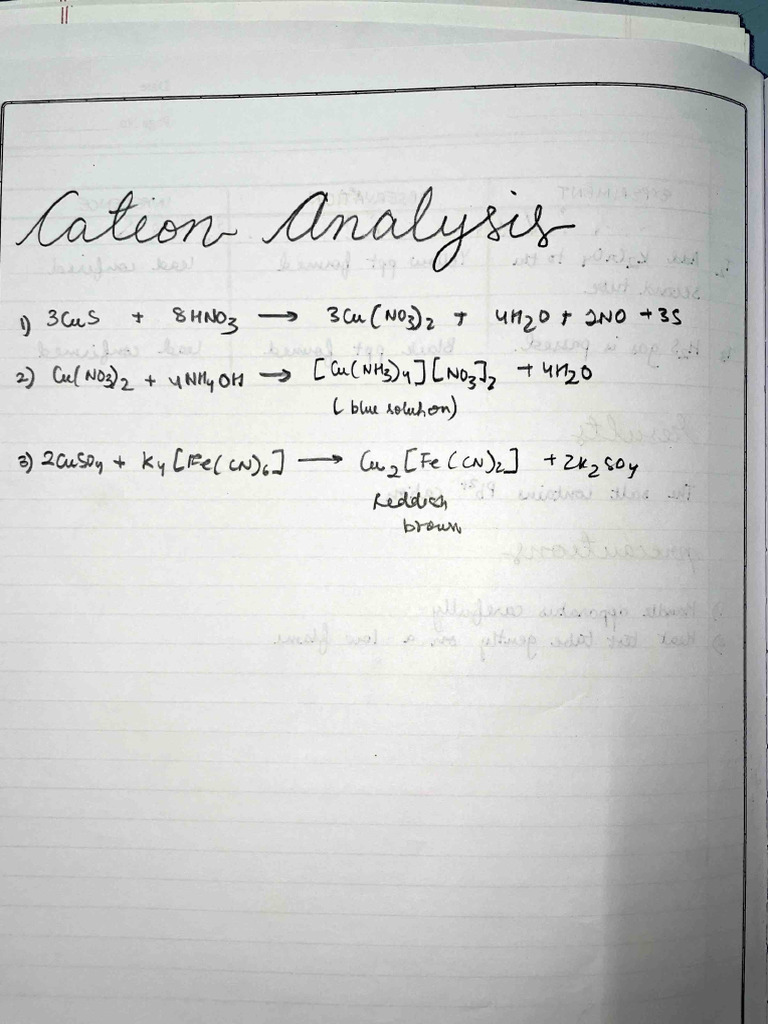 Cation Analysis
1) 3CuS + 8HNO₃ → 3Cu(NO₃)₂ + 4H₂O + 2NO + 3S
2) Cu(NO₃)₂ + 4NH₄OH → [Cu(NH₃)₄][NO₃]₂ + 4H₂O
(blue solution)
3) 2CuSO₄ + K₄[Fe(CN)₆] → Cu₂[Fe(CN)₂] + 2K₂SO₄
Reddish
brown